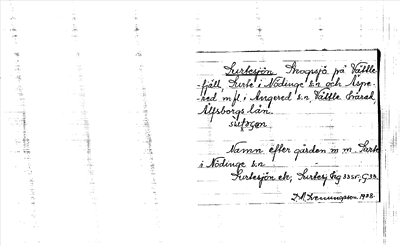 Surtesjön Skogssjö på Vättle-
fjäll, Surte i Nödinge sn och Aspe-
red m fl. i Angered sn, Vättle härad,
Älfsborgs län.
Namn efter gården m m. Surte
i Nödinge sn
Surtesjön etc, Surtesj
1938.